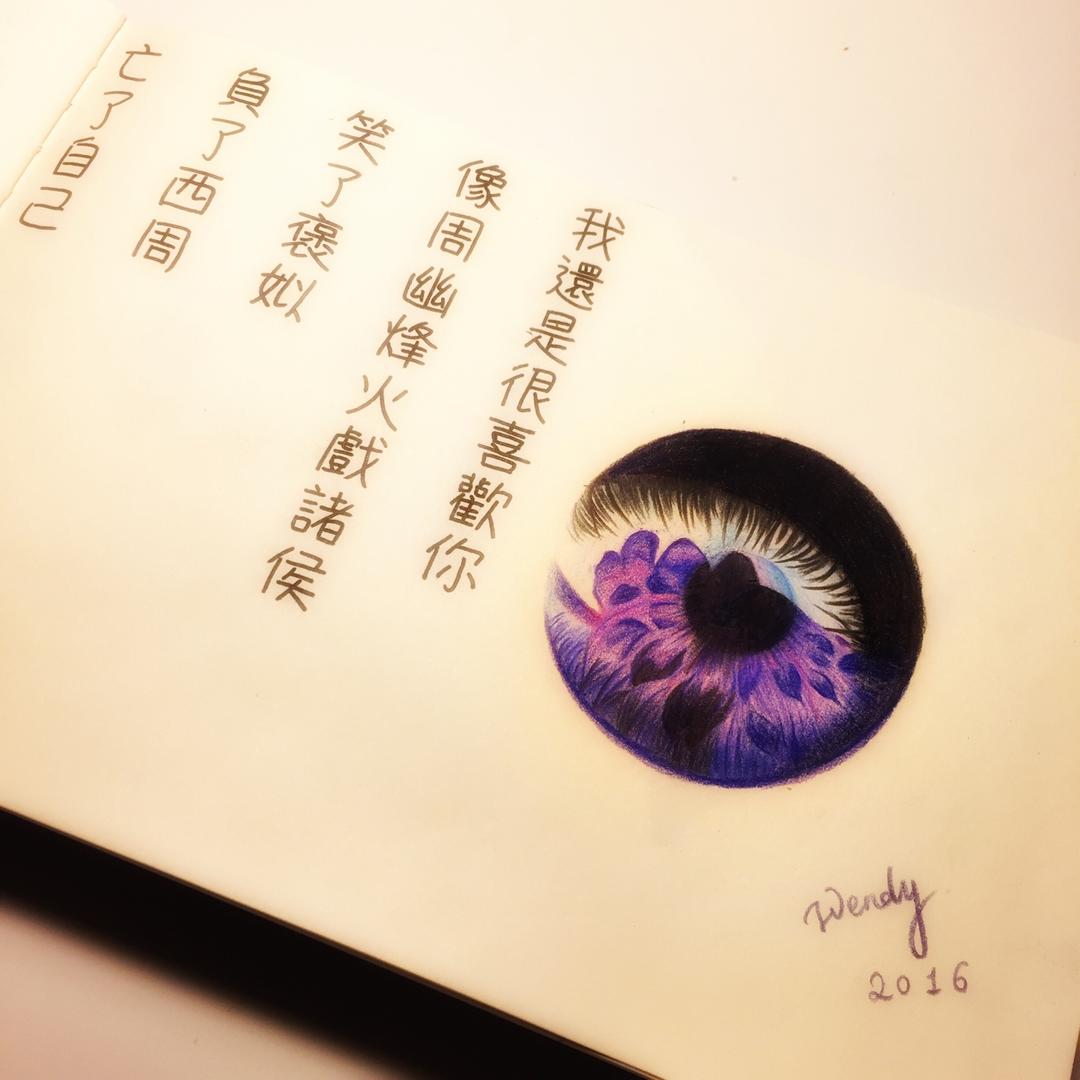 我還是很喜歡你
像周幽烽火戲諸侯
笑了褒姒
負了西周
亡了自己
Wendy
2016